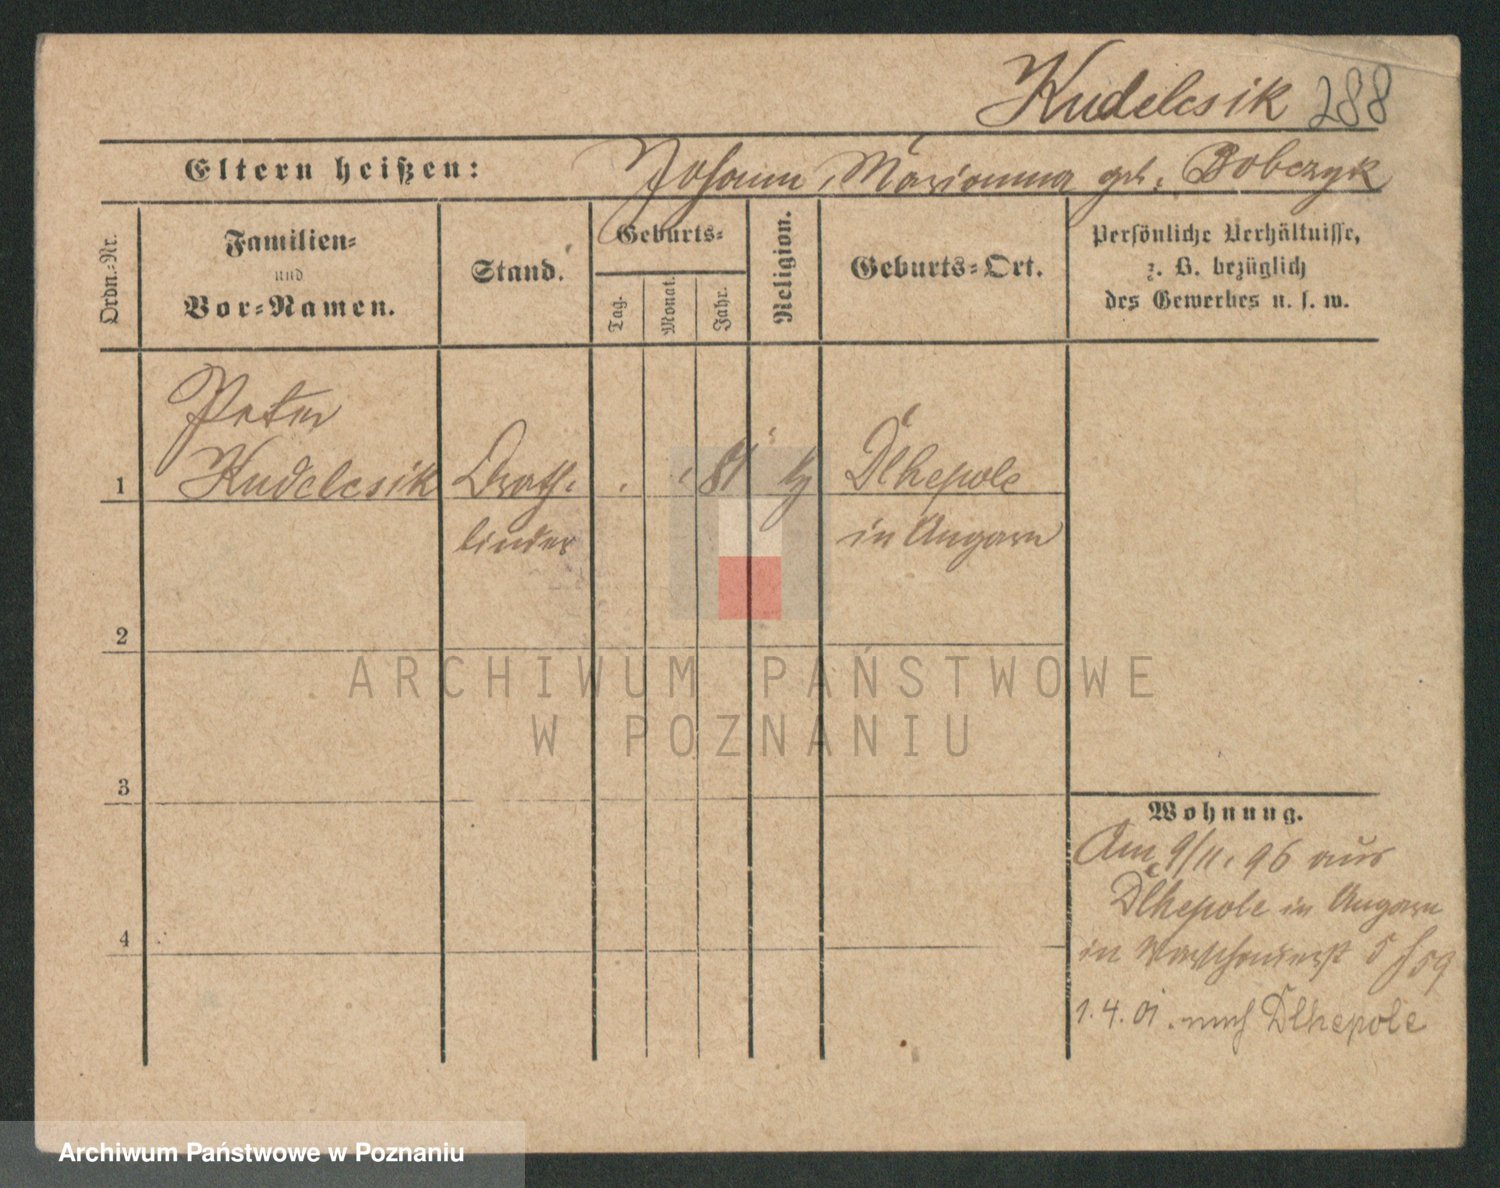 Kudelcsik 288
Eltern heißen: Johann, Marianna geb. Bobczyk
Ordn.-Nr.
Familien-
und
Vor-Namen.
Stand.
Geburts-
Tag.
Monat.
Jahr.
Religion.
Geburts-Ort.
Persönliche Verhältnisse,
z. B. bezüglich
des Gewerbes u. s. w.
Peter
1 Kudelcsik Drath- 81 Dlhepole
binder in Ungarn
2
3
4
Wohnung.
Am 9/11. 96 aus
Dlhepole in Ungarn
in Warschauerst 5
1.4.01. nach Dlhepole
ARCHIWUM PAŃSTWOWE
W POZNANIU
Archiwum Państwowe w Poznaniu